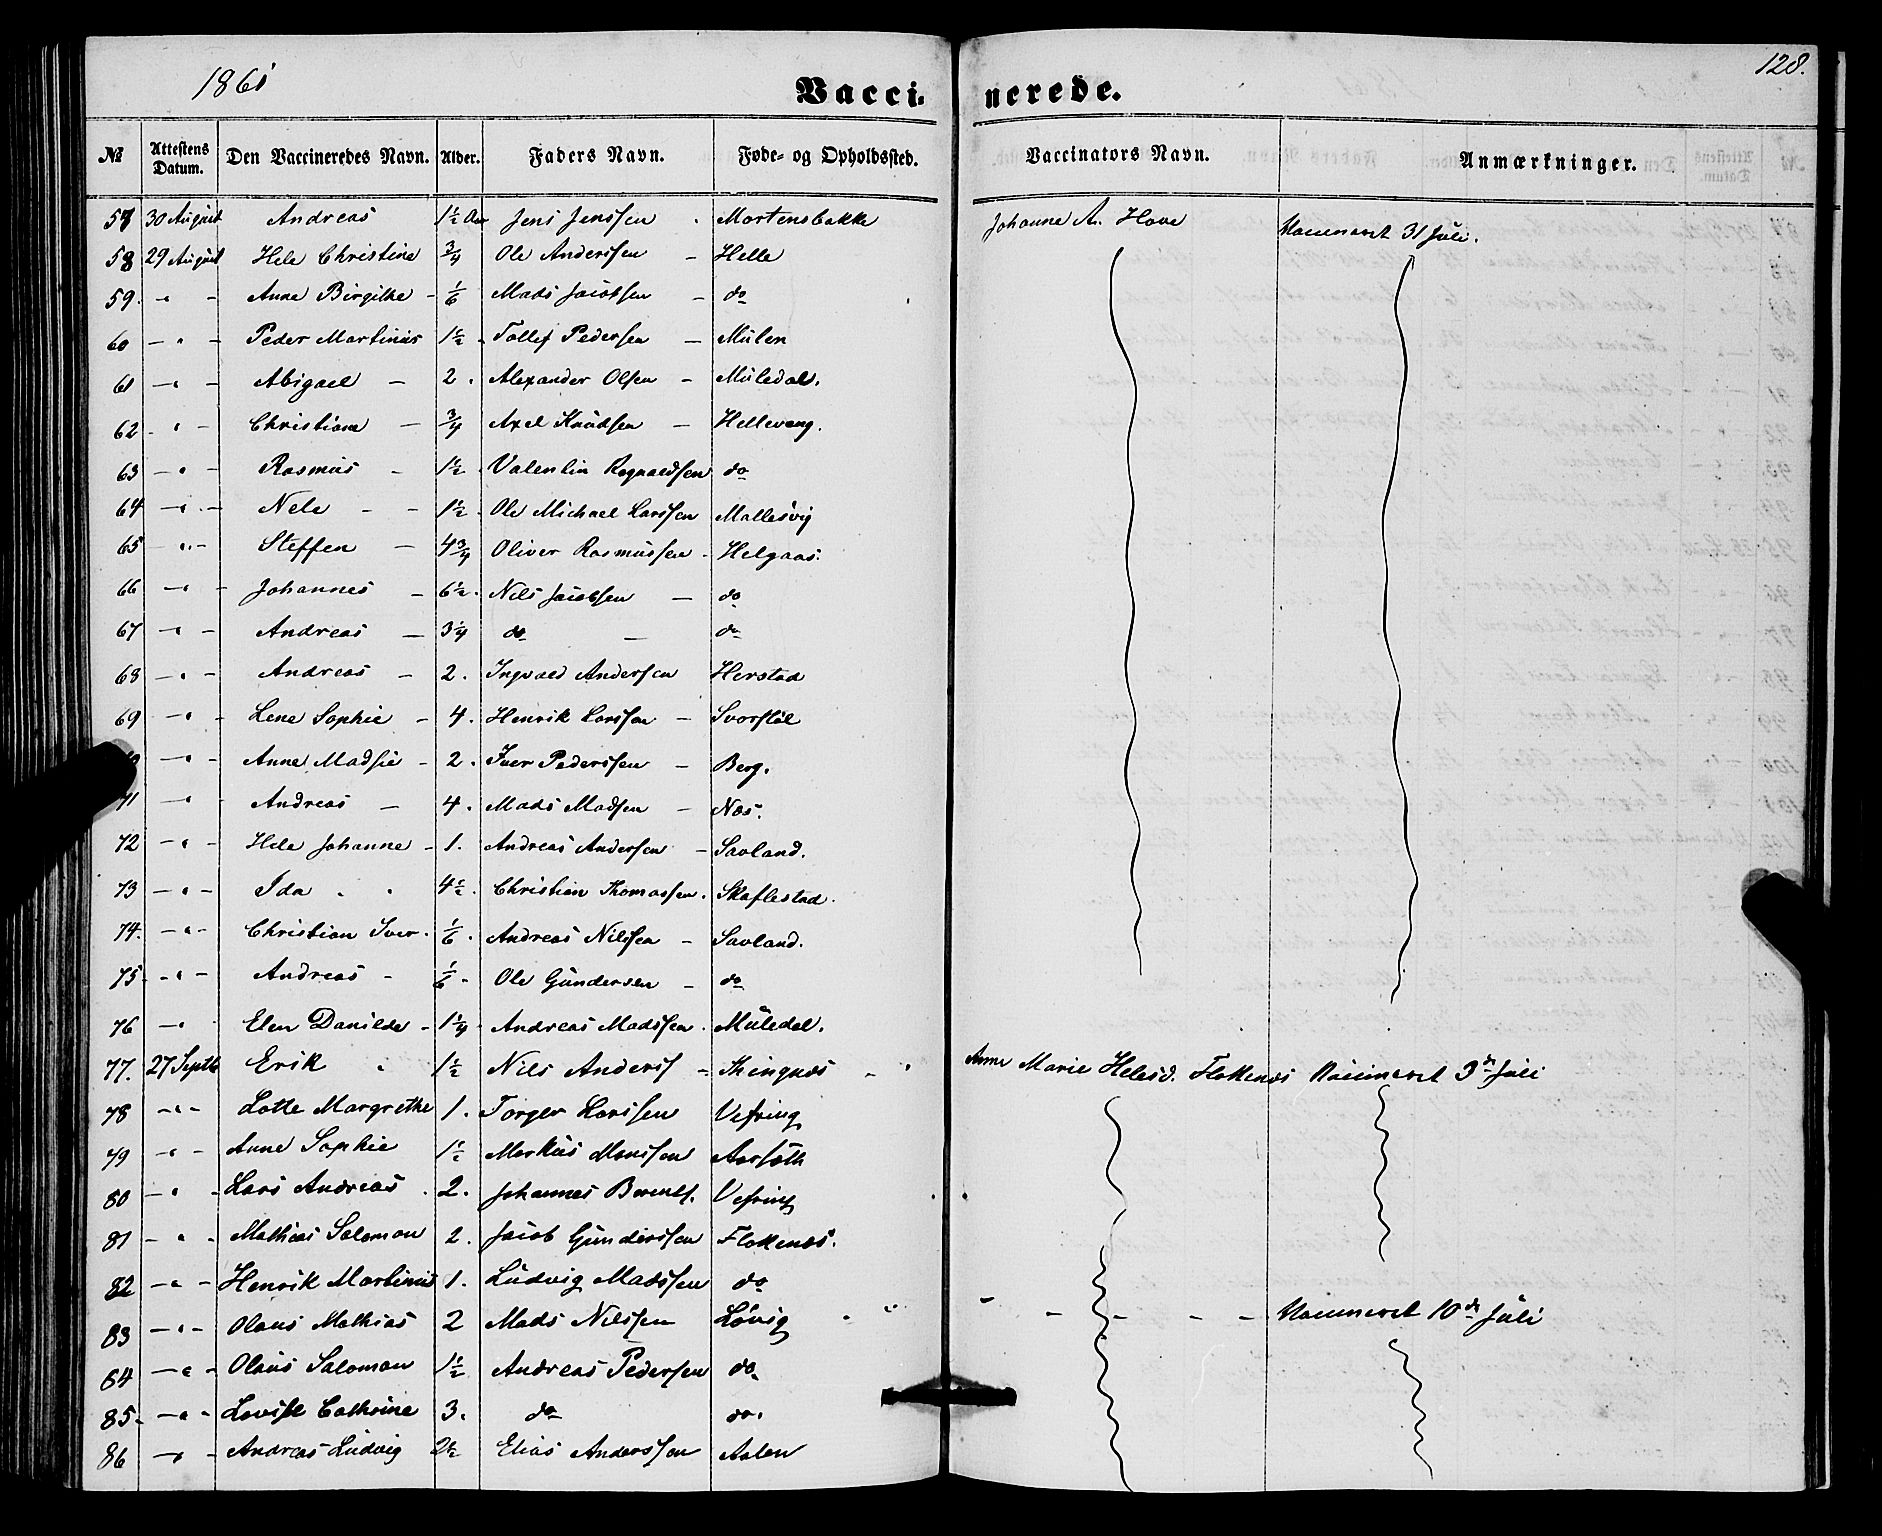 1861 Vaccinerede. 128.
№ Attestens Datum. Den Vaccineredes Navn. Alder. Faders Navn. Føde- og Opholdssted. Vaccinators Navn. Anmærkninger.
57 30 August Andreas 1½ Aar Jens Jenssen Mortensbakke Johanne A. Hove Vaccineret 31 Juli.
58 29 August Hele Christine ¾ Ole Anderssen - Helle
59. " - Anne Birgithe - 1/6 Mads Jacobsen - do
60 - " - Peder Martinus 1½ - Tollef Pedersen - Mulen
61 - " - Abigael - 2. Alexander Olsen - Muledal.
62 - " - Christiane - ¾ Axel Knudsen - Hellevang.
63 - " - Rasmus - 1½ Valentin Ragnvaldsen do
64 - " - Nele - - 1½ Ole Michael Larssen Mallesvig
65 - " - Steffen - 4¾ Oliver Rasmussen - Helgaas.
66 - " - Johannes - 6½ Nils Jacobsen - do
67 - " - Andreas - 3¼ do - do
68 - " - Andreas - 2. Ingvald Andersen Herstad
69 - " - Lene Sophie - 4. Henrik Larssen - Svorstøl
- " - Anne Madsie - 2. Iver Pederssen - Berg.
71 - " - Andreas - 4. Mads Madsen - Næs.
72 - " - Hele Johanne - 1. Andreas Andersen - Savland.
73 - " - Ida 4½. Christian Thomassen. Skaflestad.
74. - " - Christian Iver. 1/6. Andreas Nilssen - Savland.
75 - " - Andreas - 1/6 - Ole Gundersen - do
76 - " Elen Danilde - 1¼ Andreas Madssen. Muledal.
77. 27 Septb Erik 1½ Nils Anderss - Kingnæs - " Anne Marie Helesd. Flokenæs Vaccineret 3de Juli
78 - " - Lotte Margrethe 1. Torger Larssen Vefring
79 - " - Anne Sophie 1½ Markus Monssen Aarsøth
80 - " - Lars Andreas. 2. Johannes Berents. Vefring
81 - " - Mathias Salomon 2. Jacob Gunderssen Flokenæs.
82 - " - Henrik Martinus 1. Ludvig Madssen do
83 - " - Olaus Mathias 2 Mads Nilssen Løvig " - - - - - Vaccineret 10de Juli
84 - " - Olaus Salomon 1½ Andreas Pedersen do
85 - - " - Lovise Cathrine 3. do do.
86 - " - Andreas Ludvig 2½ Elias Anderssen Aalen